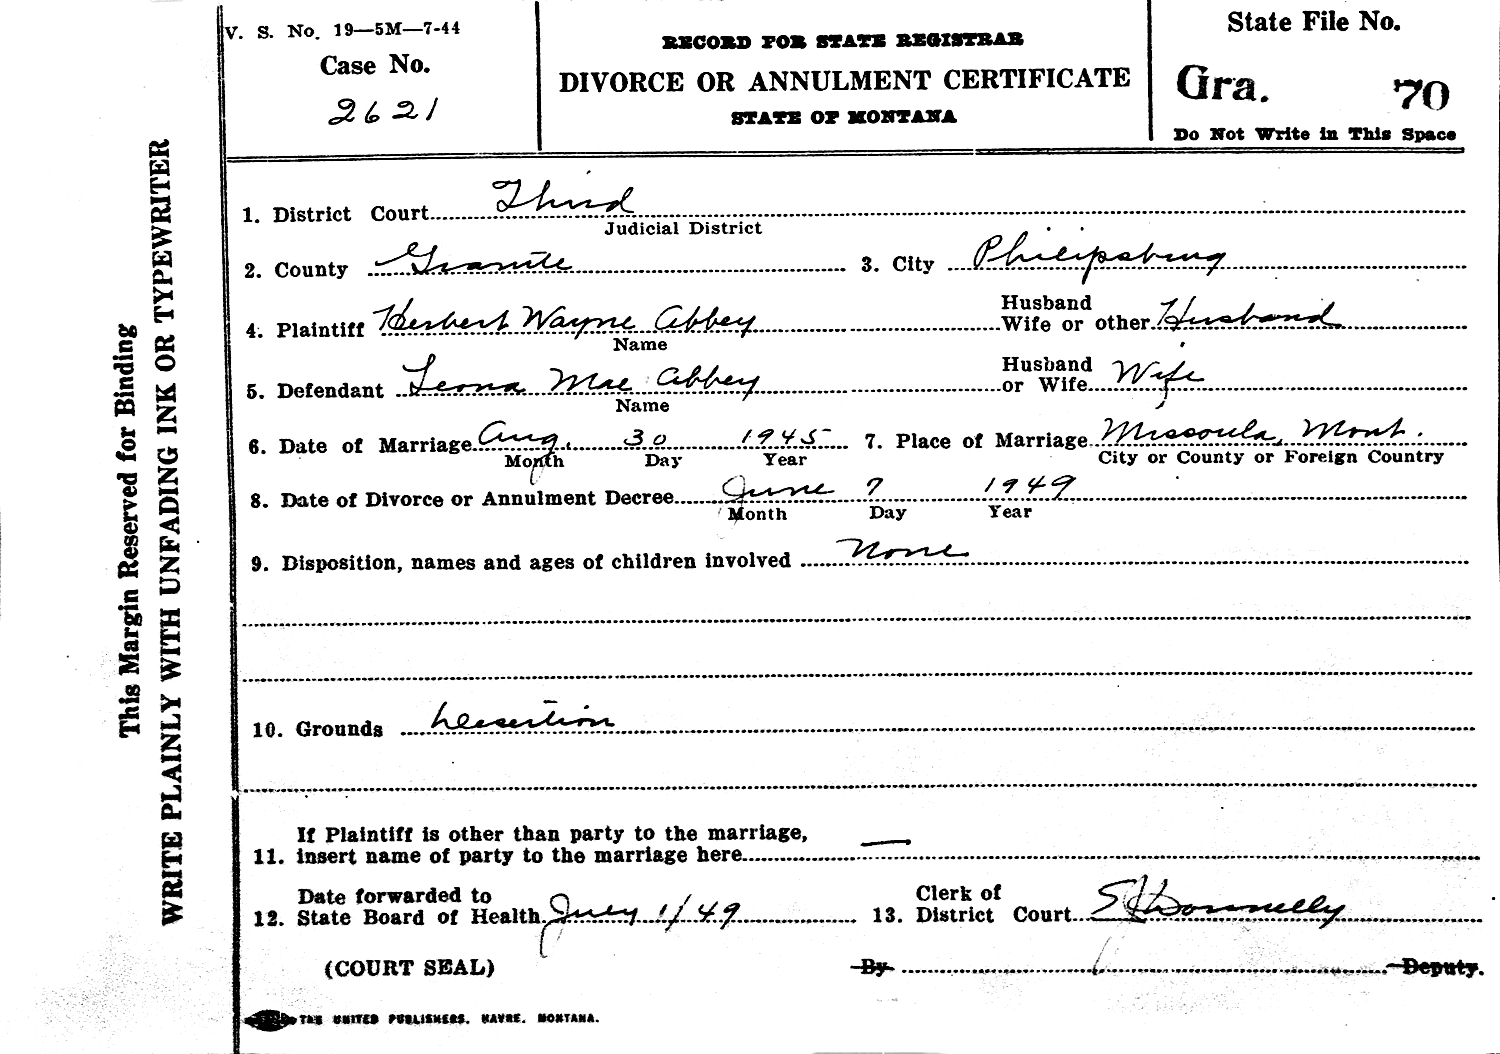 V. S. No. 19—5M—7-44
Case No.
2621
RECORD FOR STATE REGISTRAR
DIVORCE OR ANNULMENT CERTIFICATE
STATE OF MONTANA
State File No.
Gra. 70
Do Not Write in This Space
This Margin Reserved for Binding
WRITE PLAINLY WITH UNFADING INK OR TYPEWRITER
1. District Court Third
Judicial District
2. County Granite 3. City Philipsburg
4. Plaintiff Herbert Wayne Abbey Husband Wife or other Husband
Name
5. Defendant Leona Mae Abbey Husband or Wife Wife
Name
6. Date of Marriage Aug. 30 1945 7. Place of Marriage Missoula, Mont.
Month Day Year City or County or Foreign Country
8. Date of Divorce or Annulment Decree June 7 1949
Month Day Year
9. Disposition, names and ages of children involved None
10. Grounds Desertion
If Plaintiff is other than party to the marriage,
11. insert name of party to the marriage here —
Date forwarded to Clerk of
12. State Board of Health July 1/49 13. District Court Donnelly
(COURT SEAL) By Deputy.
THE UNITED PUBLISHERS, HAVRE, MONTANA.